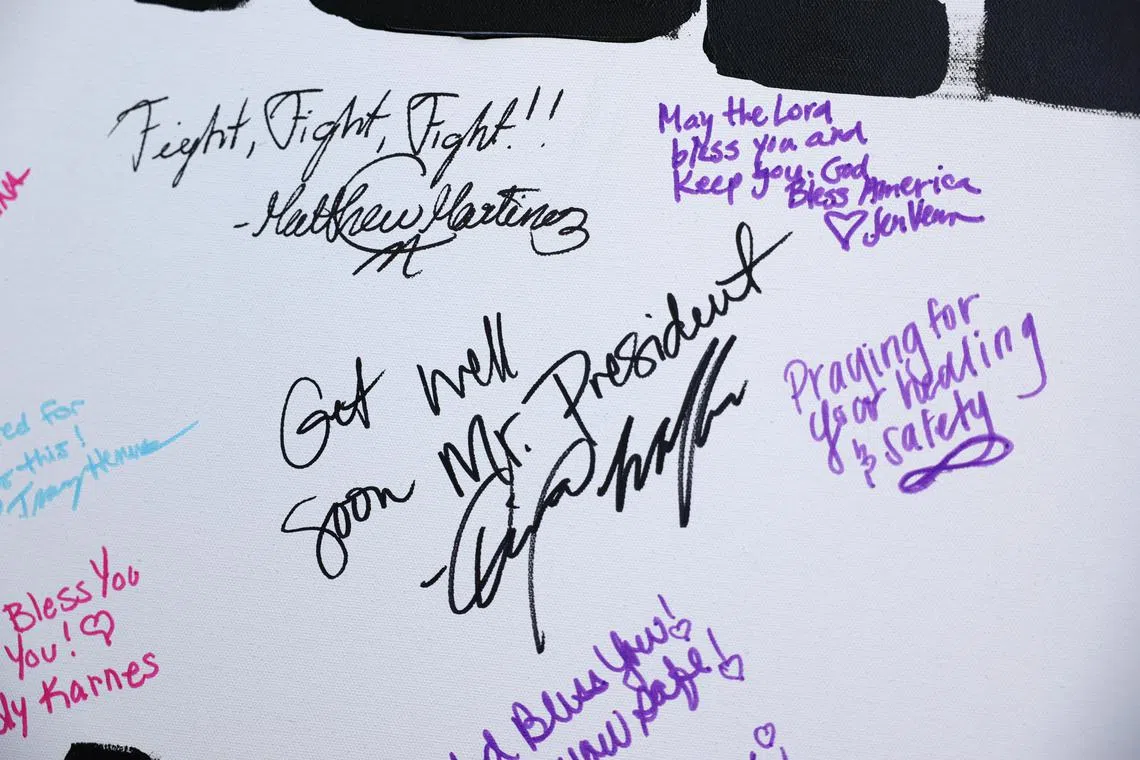 Fight, Fight, Fight!!
-Matthew Martinez
May the Lord
bless you and
Keep you. God
Bless America
Get well
soon Mr. President
Praying for
your healing
& safety
ed for
this!
Bless You
You! ♡
dy Karnes
Bless You!
Safe!